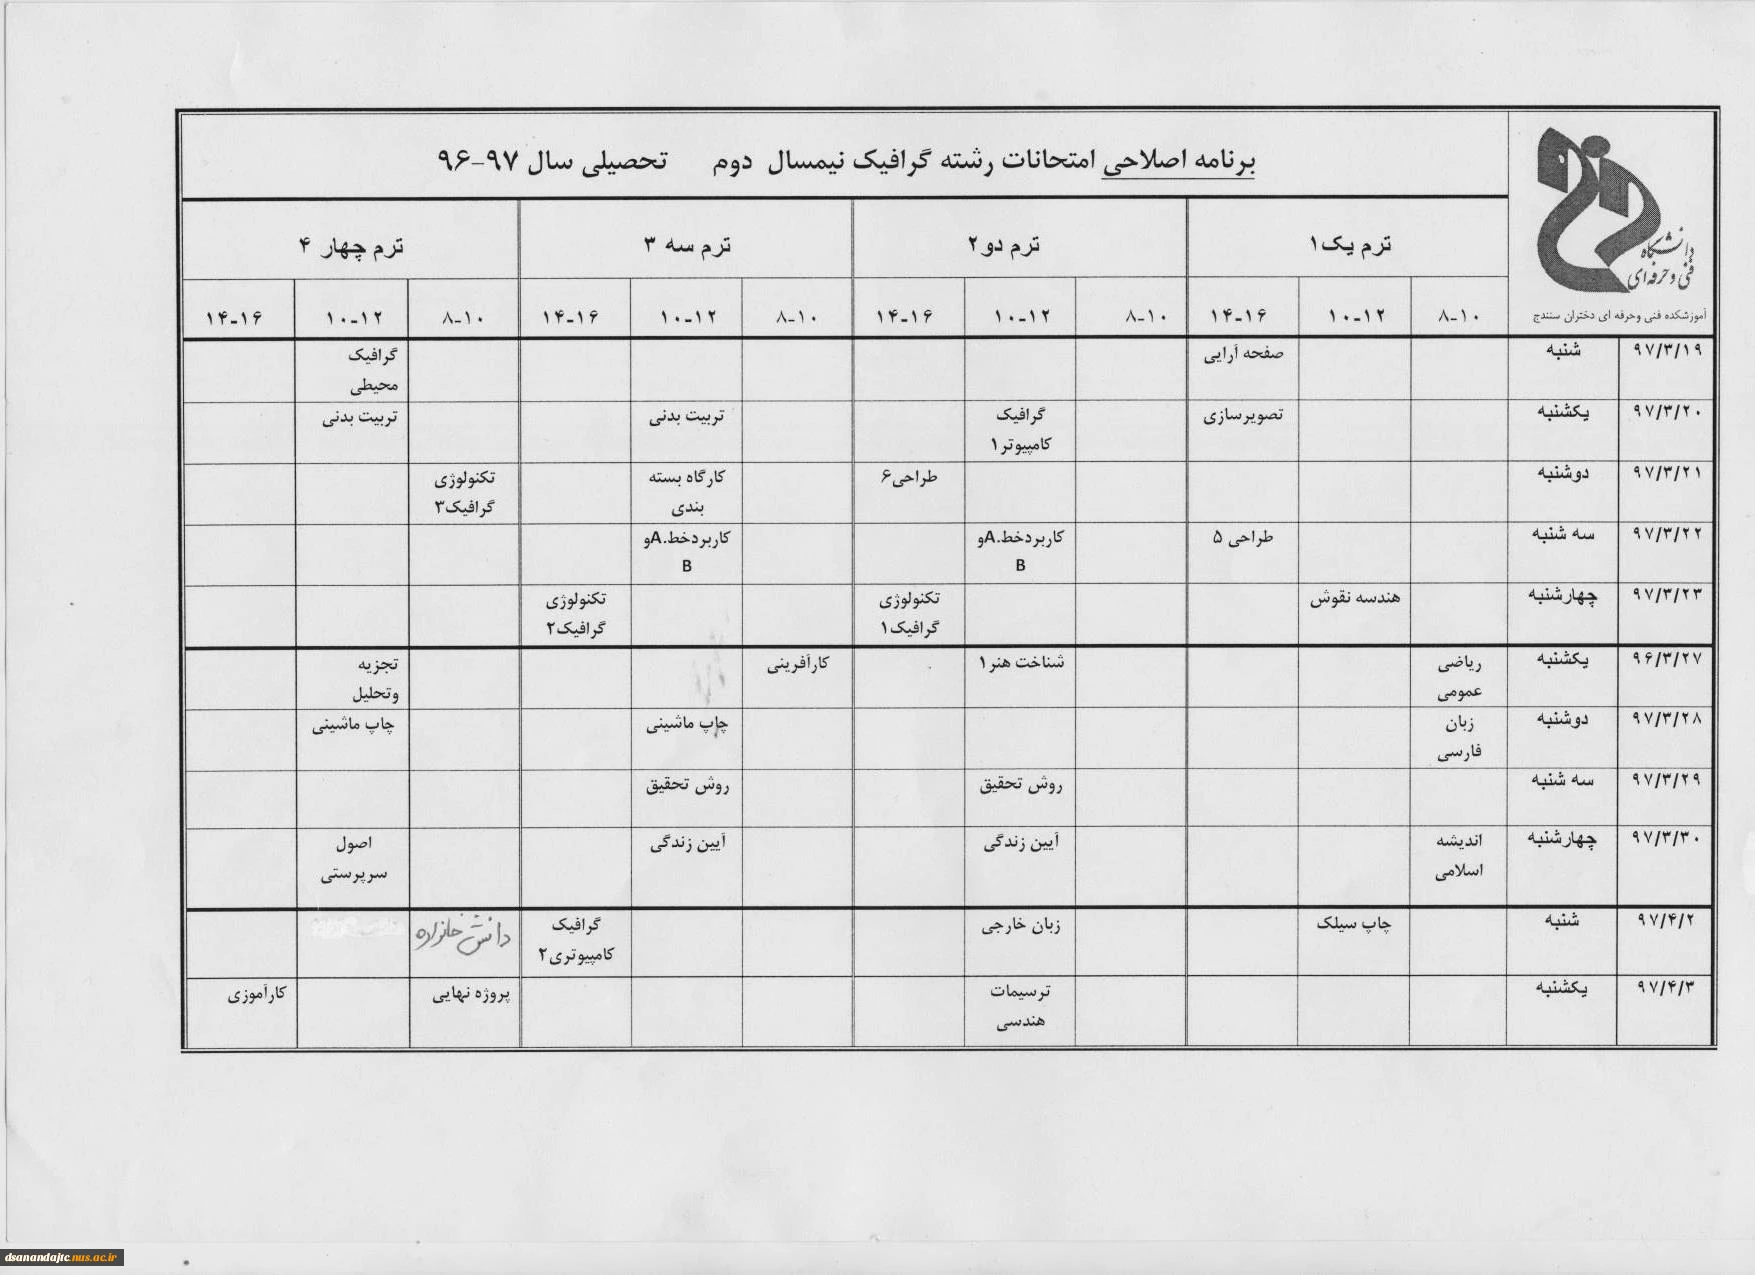 برنامه اصلاحی امتحانات رشته گرافیک نیمسال دوم تحصیلی سال ۹۷-۹۶
دانشگاه
فنی و حرفه ای
آموزشکده فنی وحرفه ای دختران سنندج
ترم یک۱ ترم دو۲ ترم سه ۳ ترم چهار ۴
۸-۱۰ ۱۰-۱۲ ۱۴-۱۶ ۸-۱۰ ۱۰-۱۲ ۱۴-۱۶ ۸-۱۰ ۱۰-۱۲ ۱۴-۱۶ ۸-۱۰ ۱۰-۱۲ ۱۴-۱۶
۹۷/۳/۱۹ شنبه صفحه آرایی گرافیک
محیطی
۹۷/۳/۲۰ یکشنبه تصویرسازی گرافیک تربیت بدنی تربیت بدنی
کامپیوتر۱
۹۷/۳/۲۱ دوشنبه طراحی۶ کارگاه بسته تکنولوژی
بندی گرافیک۳
۹۷/۳/۲۲ سه شنبه طراحی ۵ کاربردخط.Aو کاربردخط.Aو
B B
۹۷/۳/۲۳ چهارشنبه هندسه نقوش تکنولوژی تکنولوژی
گرافیک۱ گرافیک۲
۹۶/۳/۲۷ یکشنبه ریاضی شناخت هنر۱ کارآفرینی تجزیه
عمومی وتحلیل
۹۷/۳/۲۸ دوشنبه زبان چاپ ماشینی چاپ ماشینی
فارسی
۹۷/۳/۲۹ سه شنبه روش تحقیق روش تحقیق
۹۷/۳/۳۰ چهارشنبه اندیشه آیین زندگی آیین زندگی اصول
اسلامی سرپرستی
۹۷/۴/۲ شنبه چاپ سیلک زبان خارجی گرافیک دانش خانواده
کامپیوتری۲
۹۷/۴/۳ یکشنبه ترسیمات پروژه نهایی کارآموزی
هندسی
dsanandajtc.nus.ac.ir